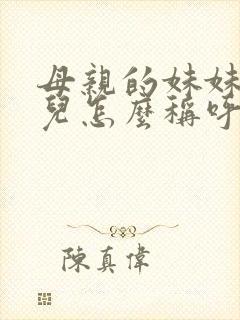 母親的妹妹
兒怎麼稱呼
陳真偉